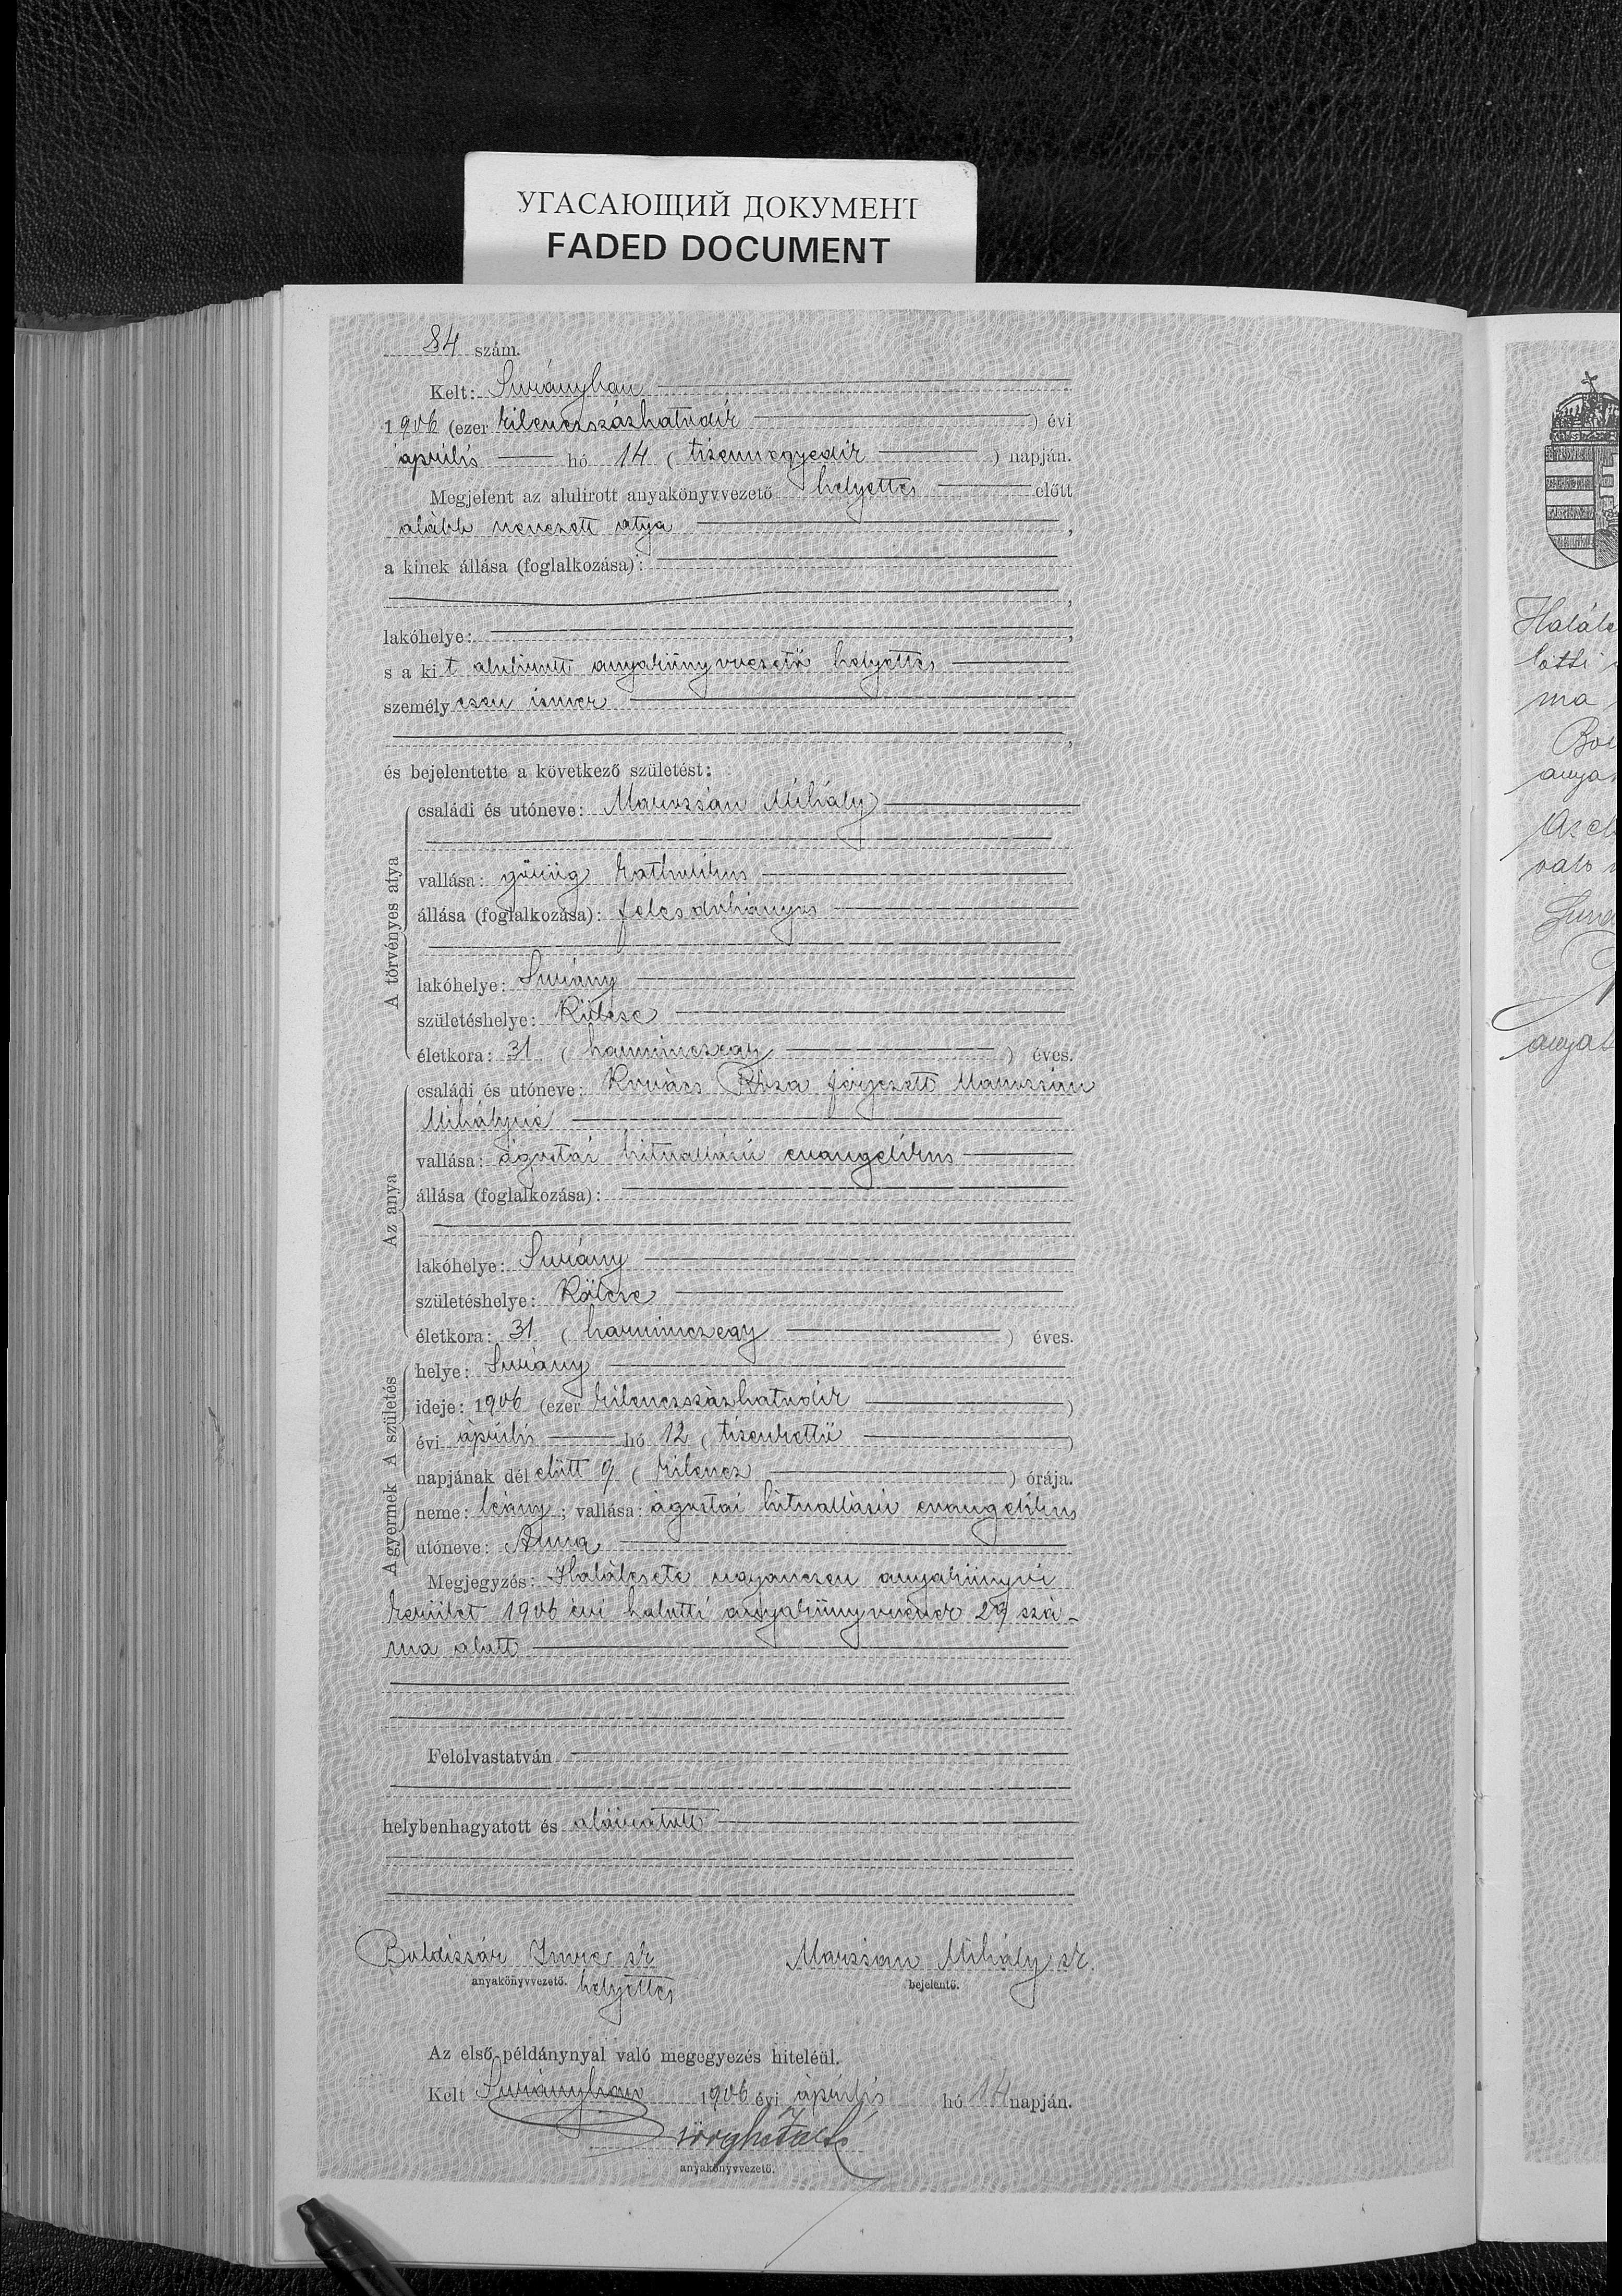 УГАСАЮЩИЙ ДОКУМЕНТ
FADED DOCUMENT
84 szám.
Kelt: Surányban
1906 (ezer kilenczszázhatodik ) évi
április hó 14 ( tizennegyedik ) napján.
Megjelent az alulirott anyakönyvvezető helyettes előtt
alább nevezett atya ,
a kinek állása (foglalkozása):
,
lakóhelye: ,
s a kit alulirott anyakönyvvezető helyettes
személyesen ismer
,
és bejelentette a következő születést:
A törvényes atya
családi és utóneve: Marossán Mihály
vallása: görög katholikus
állása (foglalkozása): feles dohányos
lakóhelye: Surány
születéshelye: Kölcse
életkora: 31 ( harminczegy ) éves.
Az anya
családi és utóneve: Kovács Róza férjezett Marossán
Mihályné
vallása: ágostai hitvallású evangelikus
állása (foglalkozása):
lakóhelye: Surány
születéshelye: Kölcse
életkora: 31 ( harminczegy ) éves.
A születés
helye: Surány
ideje: 1906 (ezer kilenczszázhatodik )
évi április hó 12 ( tizenkettő )
napjának dél előtt 9 ( kilencz ) órája.
A gyermek
neme: leány ; vallása: ágostai hitvallású evangelikus
utóneve: Anna
Megjegyzés: Halálesete ugyanezen anyakönyvi
kerület 1906 évi halotti anyakönyvvének 29 szá-
ma alatt
Felolvastatván
helybenhagyatott és aláiratott
Boldizsár Imre sk Marossan Mihály sk.
anyakönyvvezető. helyettes bejelentő.
Az első példánynyal való megegyezés hiteléül.
Kelt Surányban 1906 évi április hó 14 napján.
anyakönyvvezető.
Halále
ma
anya